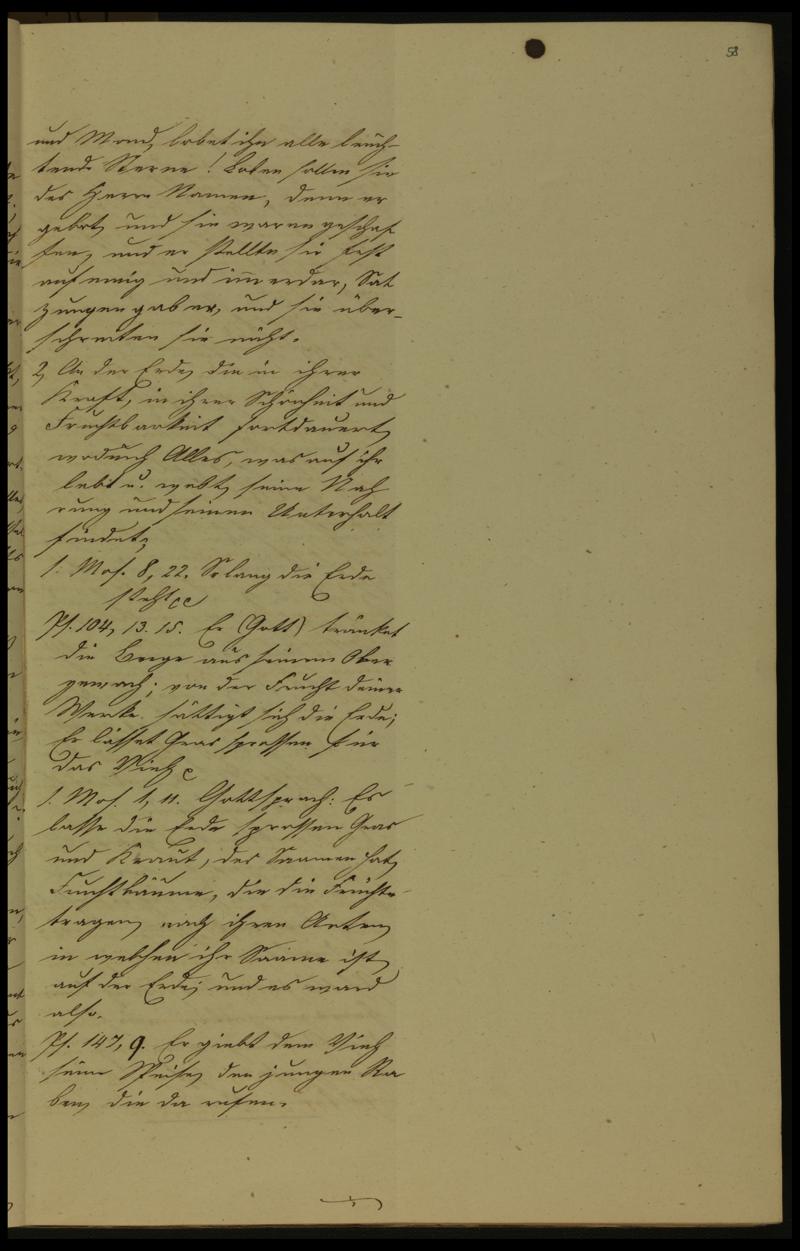 58
und Mond, lobet ihn alle leuch-
tende Sterne! Loben sollen sie
des Herrn Namen, denn er
gebot, und sie waren geschaf
fen, und er stellte sie fest
auf ewig und im̄erdar, Sat
zungen gab er, und sie über-
schreiten sie nicht.
2, An der Erde, die in ihrer
Kraft, in ihrer Schönheit und
Fruchtbarkeit fortdauert,
wodurch Alles, was auf ihr
lebt u. webt, seine Nah
rung und seinen Unterhalt
findet;
1. Mos. 8, 22. Solang die Erde
steht
Ps. 104, 13. 15. Er (Gott) tränket
die Berge aus seinem Ober
gemach; von der Frucht deiner
Werke sättigt sich die Erde;
Er lässet Gras sprossen für
das Vieh
1. Mos. 1, 11. Gott sprach: Es
lasse die Erde sprossen Gras
und Kraut, das Saamen hat,
Fruchtbäume, die die Früchte
tragen, nach ihren Arten,
in welchen ihr Saame ist,
auf der Erde; und es ward
also.
Ps. 147, 9. Er giebt dem Vieh
seine Speise, den jungen Ra
ben, die da rufen.